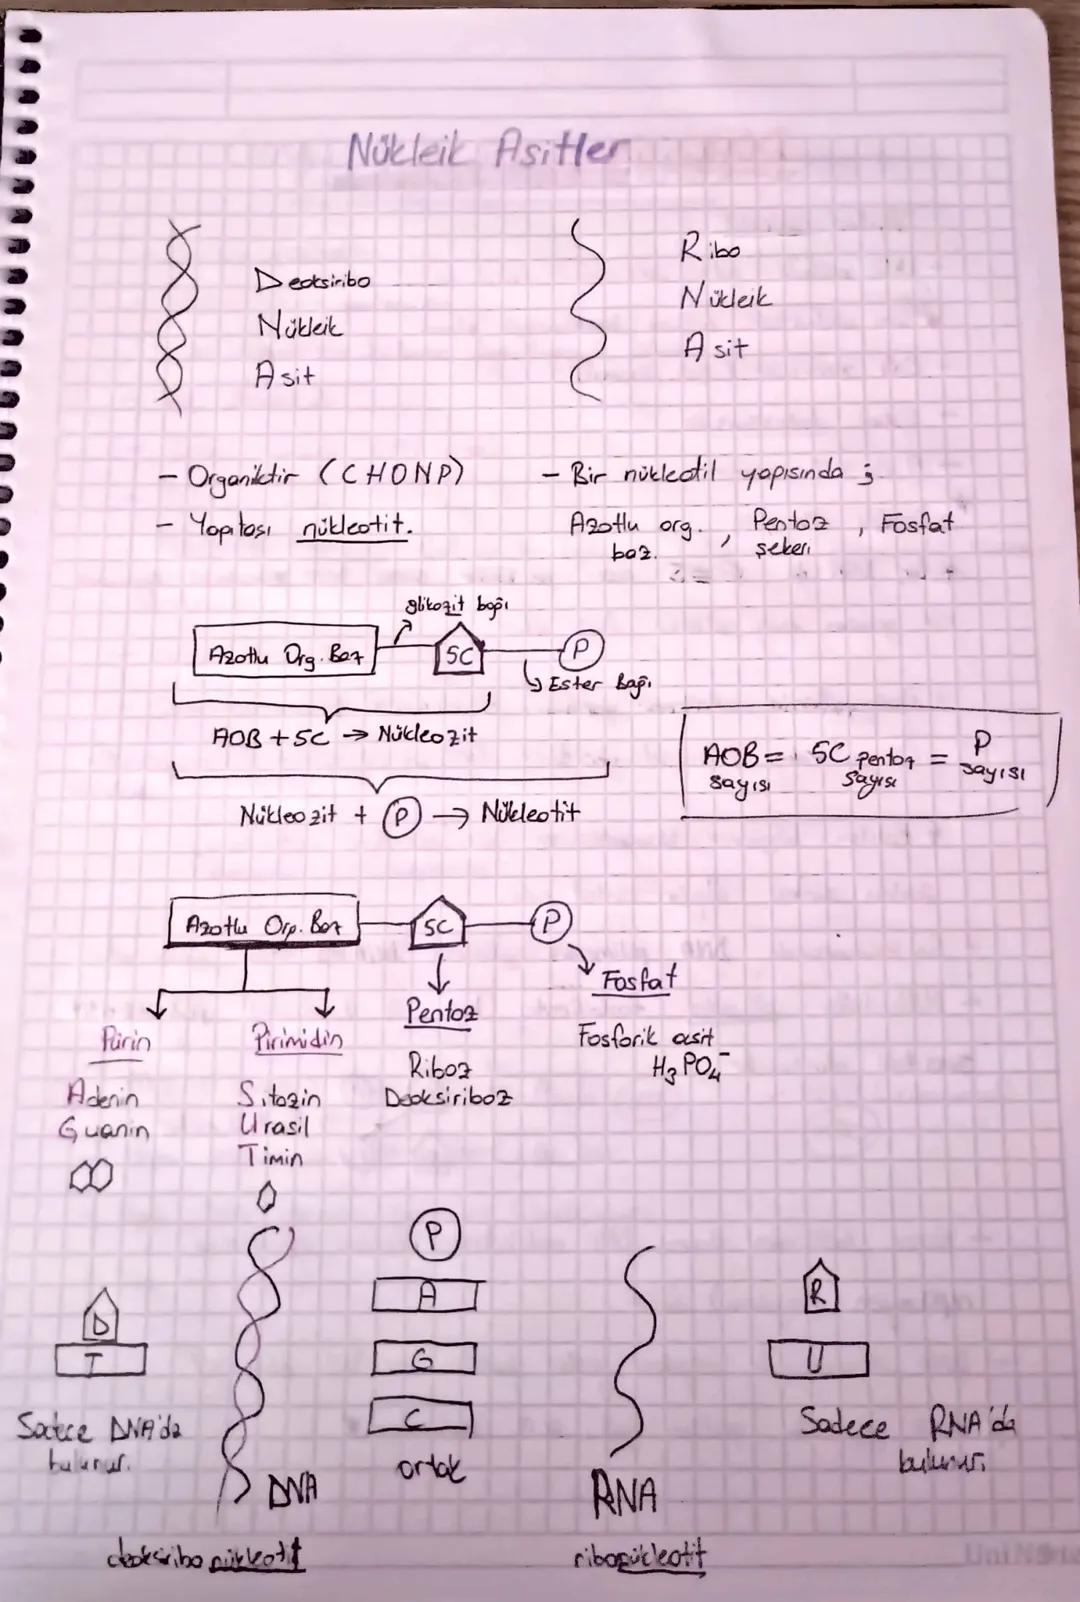 Nükleik Asitler
Deoksiribo
Nükleik
Asit
Ribo
Nükleik
Asit
- Organiktir (CHONP)
- Yapıtası nükleotit.
- Bir nükleotil yapısında ;
Azotlu org. baz. , Pentoz şekeri , Fosfat
glikozit bağı
Azotlu Org. Baz
5C
P
Ester Bağı
AOB + 5C → Nükleozit
Nükleozit + P → Nükleotit
AOB sayısı = 5C pentoz sayısı = P sayısı
Azotlu Org. Baz
5C
P
Pürin
Adenin
Guanin
Pirimidin
Sitozin
Urasil
Timin
Pentoz
Riboz
Deoksiriboz
Fosfat
Fosforik asit
H3PO4-
D
T
Sadece DNA'da
bulunur.
DNA
deoksiribonükleotit
P
A
G
C
ortak
RNA
ribonükleotit
R
U
Sadece RNA'da
bulunur.